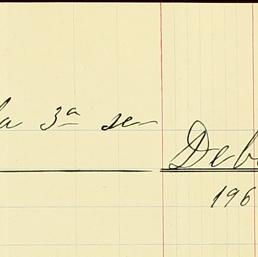 la 3ª se
Deb
196